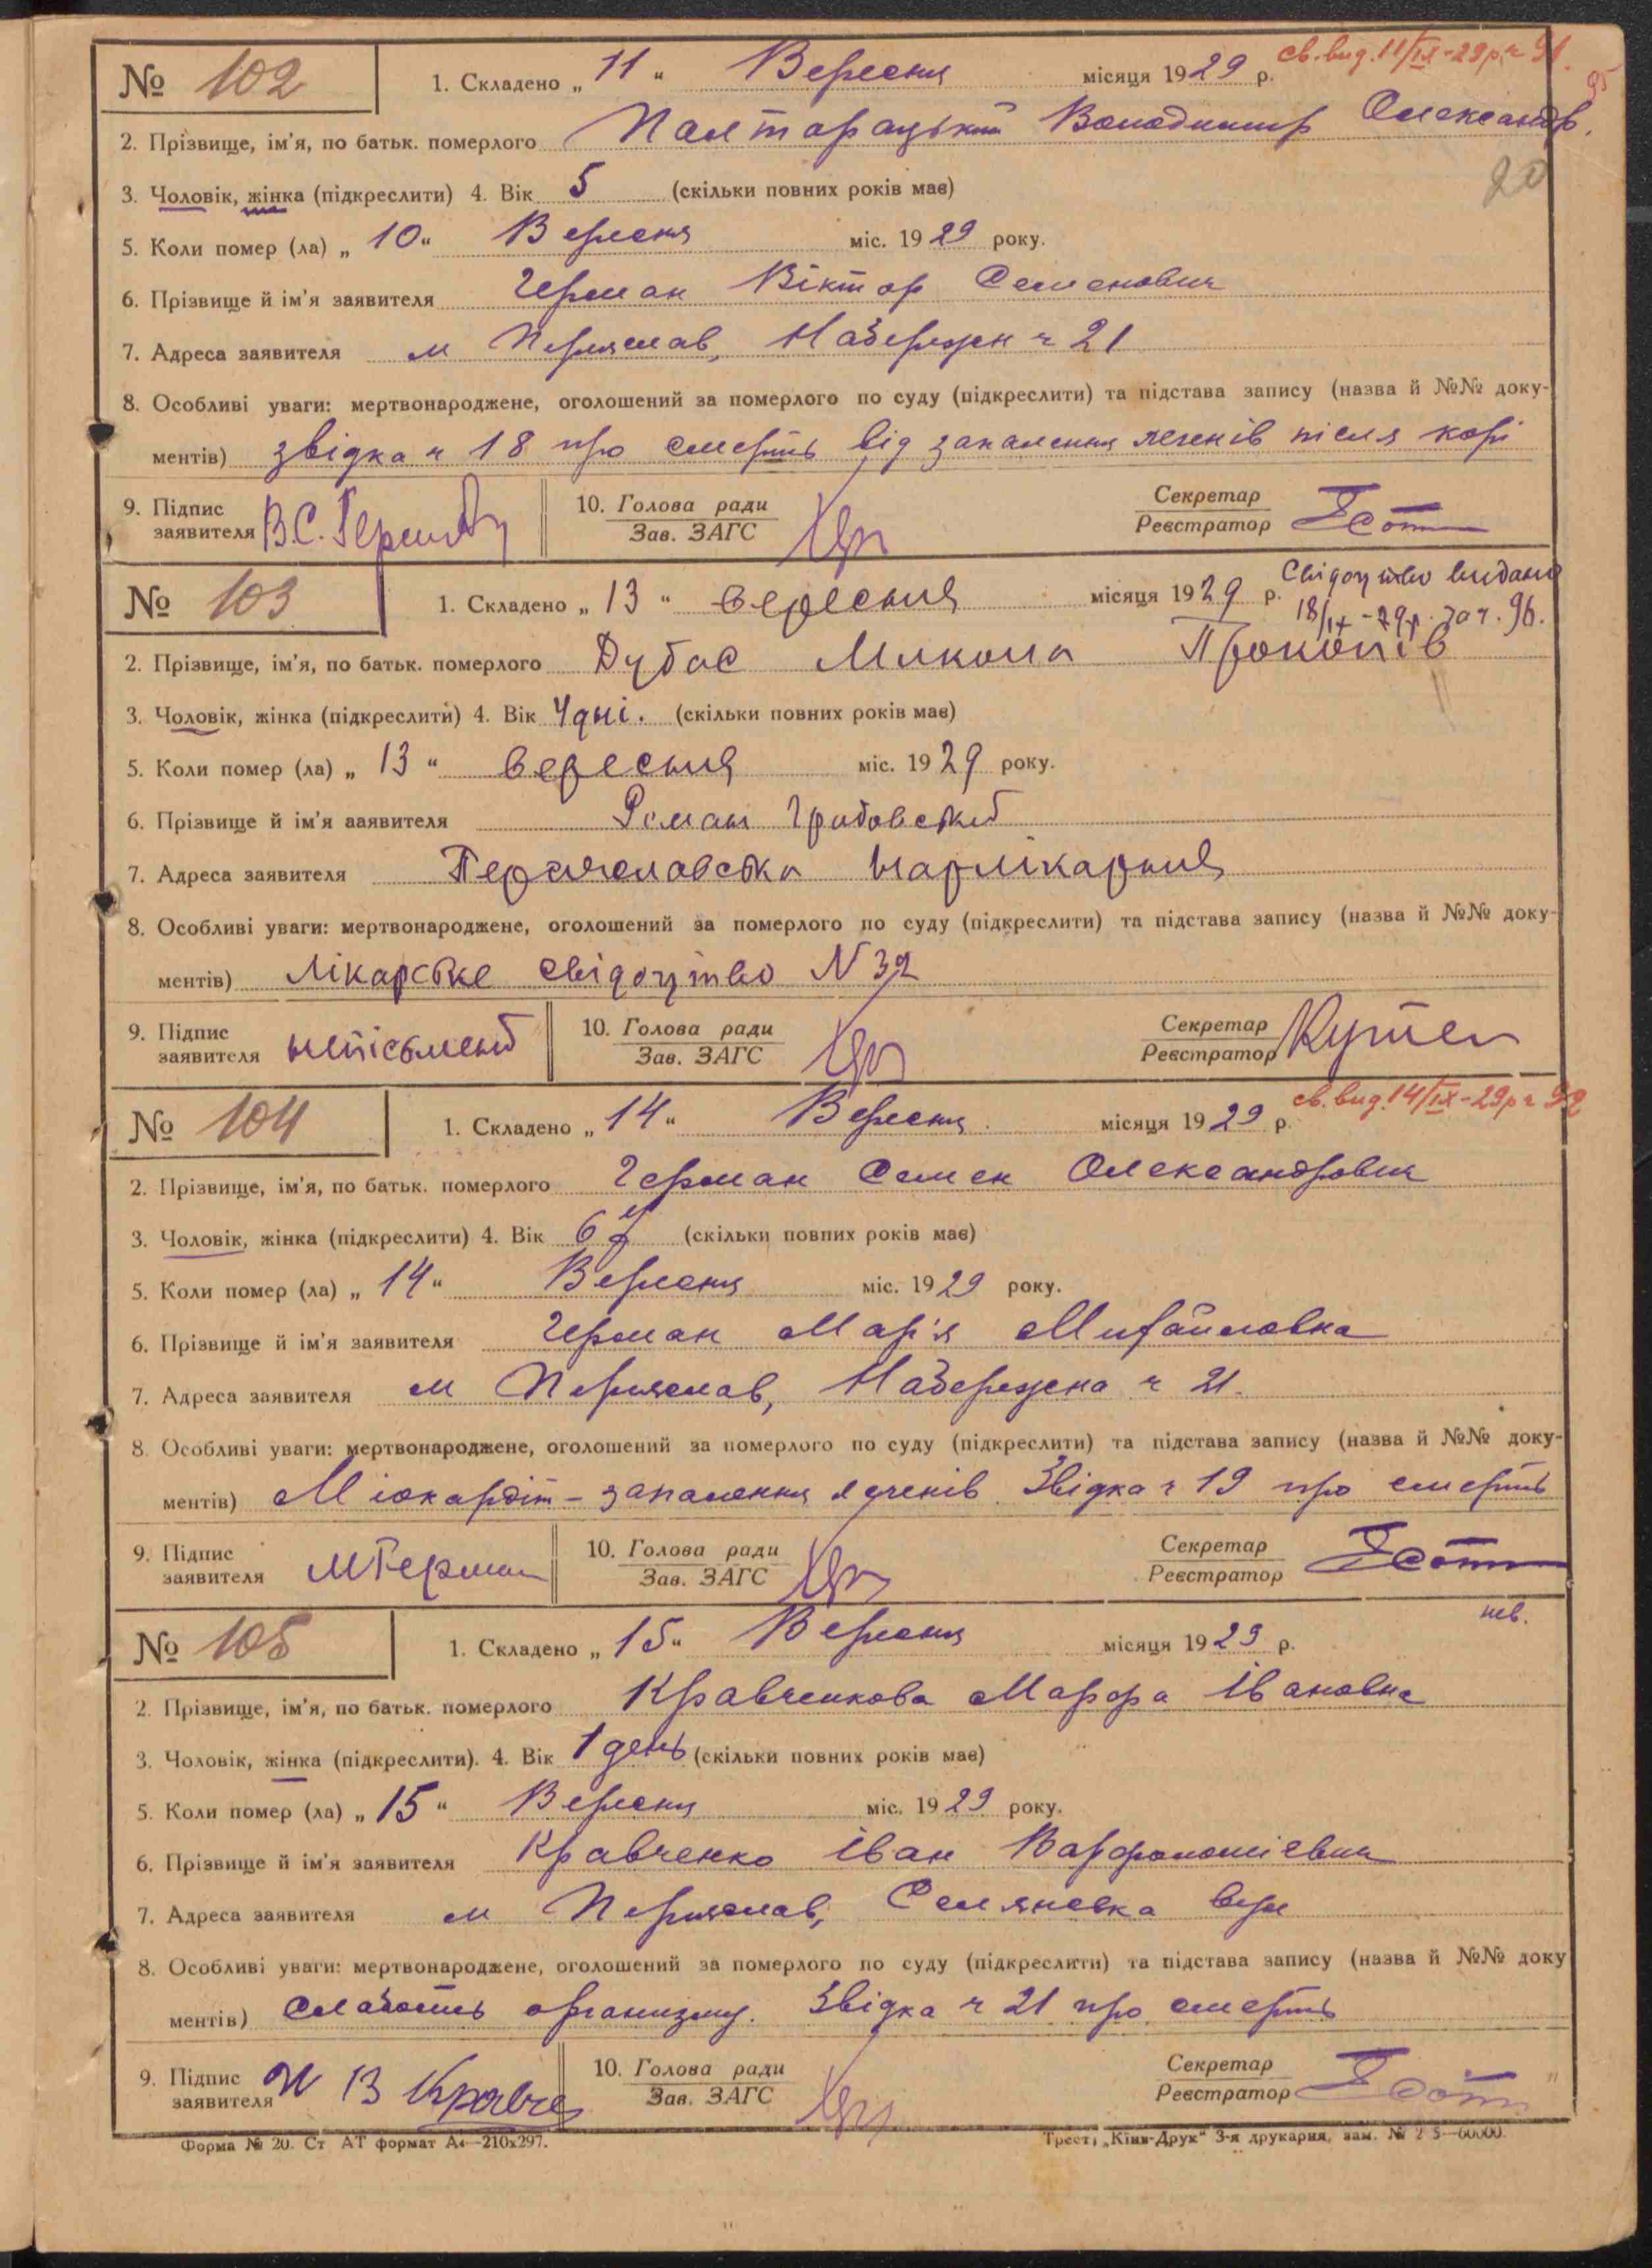 № 102 1. Складено „ 11 “ Вересня місяця 1929 р. св. вид. 11/IX-29р ч 91.
95
2. Прізвище, ім'я, по батьк. померлого Палторацький Володимир Олександр.
20
3. Чоловік, жінка (підкреслити) 4. Вік 5 (скільки повних років має)
5. Коли помер (ла) „ 10 “ Вересня міс. 1929 року.
6. Прізвище й ім'я заявителя Герман Віктор Семенович
7. Адреса заявителя м Переяслав, Набережн ч 21
8. Особливі уваги: мертвонароджене, оголошений за померлого по суду (підкреслити) та підстава запису (назва й №№ доку-
ментів) звідка ч 18 про смерть від запалення легенів після корі
9. Підпис заявителя В.С. Герман 10. Голова ради Зав. ЗАГС Секретар Реєстратор
№ 103 1. Складено „ 13 “ вересня місяця 1929 р. Свідоцтво видано
18/IX-29р. за ч. 96.
2. Прізвище, ім'я, по батьк. померлого Дубас Микола Прокопів
3. Чоловік, жінка (підкреслити) 4. Вік 4 дні. (скільки повних років має)
5. Коли помер (ла) „ 13 “ вересня міс. 1929 року.
6. Прізвище й ім'я заявителя Роман Грибовський
7. Адреса заявителя Переяславська нарлікарня
8. Особливі уваги: мертвонароджене, оголошений за померлого по суду (підкреслити) та підстава запису (назва й №№ доку-
ментів) Лікарське свідоцтво N 32
9. Підпис заявителя непісьмений 10. Голова ради Зав. ЗАГС Секретар Реєстратор
№ 104 1. Складено „ 14 “ Вересня місяця 1929 р. св. вид. 14/IX-29р ч 92
2. Прізвище, ім'я, по батьк. померлого Герман Семен Олександрович
3. Чоловік, жінка (підкреслити) 4. Вік (скільки повних років має)
5. Коли помер (ла) „ 14 “ Вересня міс. 1929 року.
6. Прізвище й ім'я заявителя Герман Мар'я Михайловна
7. Адреса заявителя м Переяслав, Набережна ч 21.
8. Особливі уваги: мертвонароджене, оголошений за померлого по суду (підкреслити) та підстава запису (назва й №№ доку-
ментів) Міокардіт - запалення легенів. Звідка ч 19 про смерть
9. Підпис заявителя МГерман 10. Голова ради Зав. ЗАГС Секретар Реєстратор
№ 105 1. Складено „ 15 “ Вересня місяця 1929 р.
2. Прізвище, ім'я, по батьк. померлого Кравченкова Марфа Івановна
3. Чоловік, жінка (підкреслити). 4. Вік 1 день (скільки повних років має)
5. Коли помер (ла) „ 15 “ Вересня міс. 1929 року.
6. Прізвище й ім'я заявителя Кравченко Іван Варфоломієвич
7. Адреса заявителя м Переяслав,
8. Особливі уваги: мертвонароджене, оголошений за померлого по суду (підкреслити) та підстава запису (назва й №№ доку
ментів) Слабость организму. Звідка ч 21 про смерть
9. Підпис заявителя 10. Голова ради Зав. ЗАГС Секретар Реєстратор
Форма № 20. Ст АТ формат А4—210х297. Трест „Київ-Друк“ 3-я друкарня, зам.